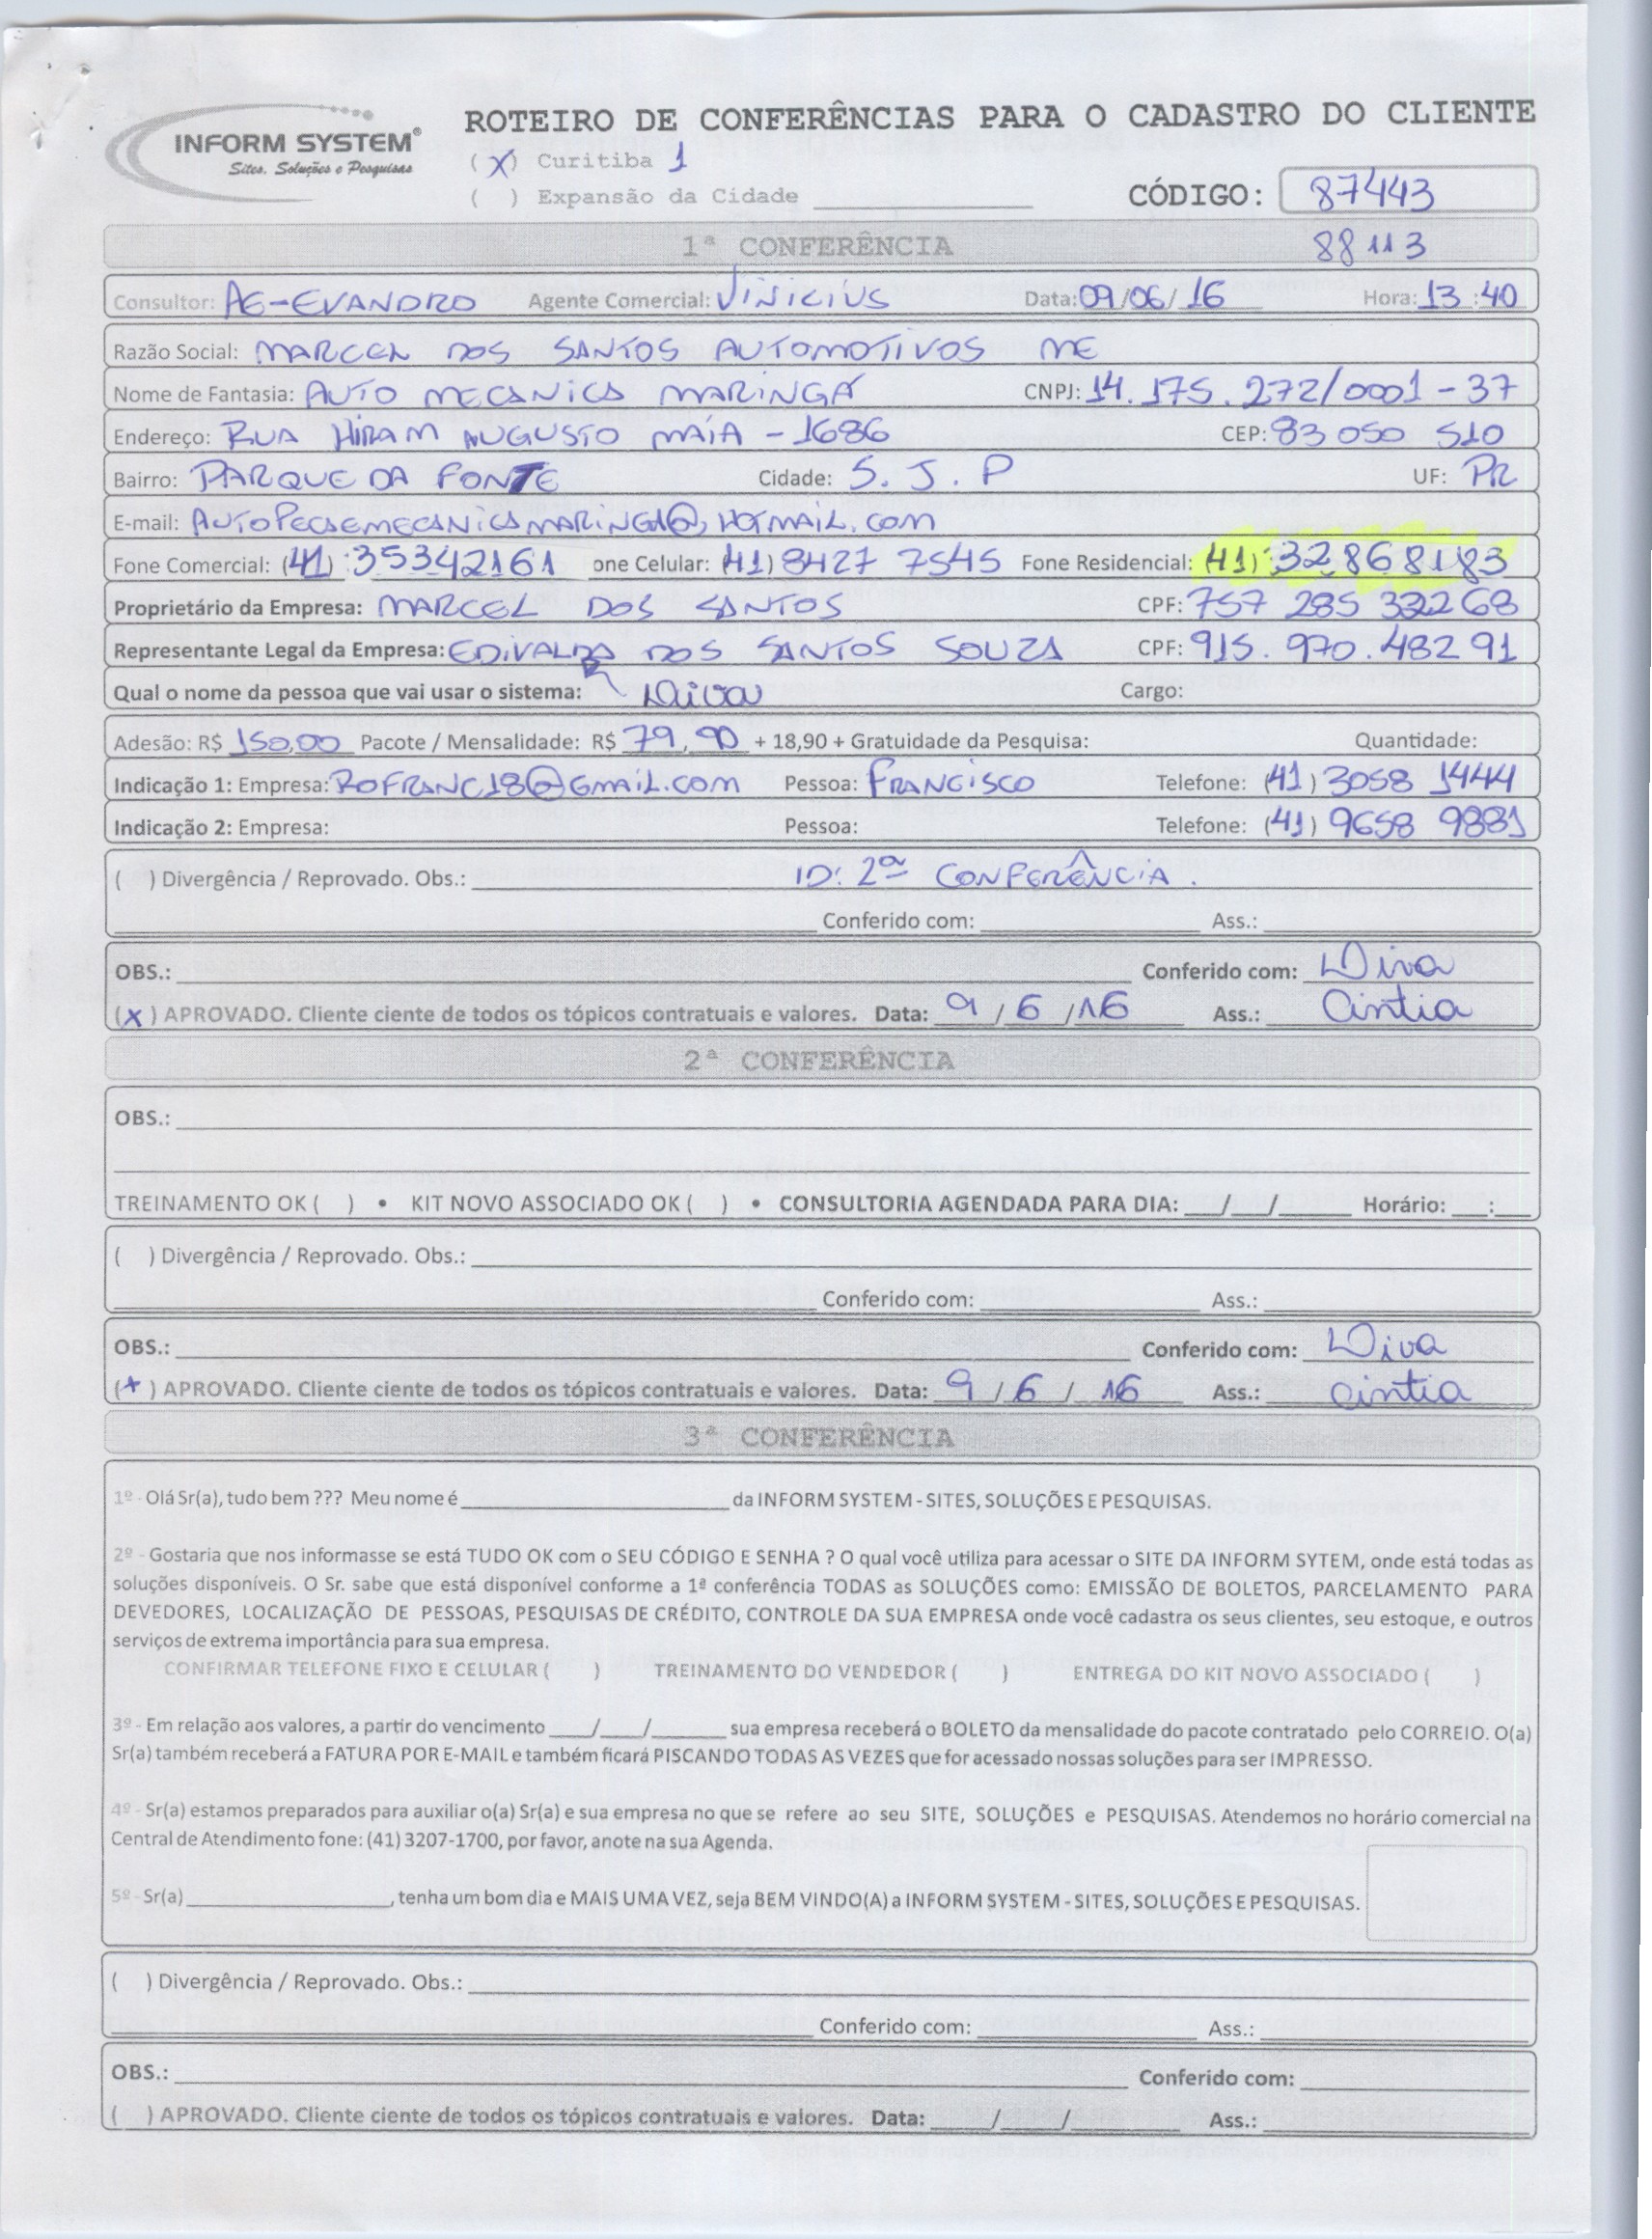 INFORM SYSTEM®
Sites, Soluções e Pesquisas
ROTEIRO DE CONFERÊNCIAS PARA O CADASTRO DO CLIENTE
(X) Curitiba 1
( ) Expansão da Cidade
CÓDIGO: 87443
1ª CONFERÊNCIA 88113
Consultor: AE-EVANDRO Agente Comercial: VINICIUS Data: 09/06/16 Hora: 13:40
Razão Social: MARCEL DOS SANTOS AUTOMOTIVOS ME
Nome de Fantasia: AUTO MECANICA MARINGÁ CNPJ: 14.175.272/0001-37
Endereço: RUA HIRAM AUGUSTO MAIA - 1686 CEP: 83 050 510
Bairro: PARQUE DA FONTE Cidade: S. J. P UF: PR
E-mail: AUTOPECASEMECANICAMARINGA@HOTMAIL.COM
Fone Comercial: (41) 35342161 one Celular: (41) 8427 7545 Fone Residencial: (41) 32868183
Proprietário da Empresa: MARCEL DOS SANTOS CPF: 757 285 332 68
Representante Legal da Empresa: EDIVALDA DOS SANTOS SOUZA CPF: 915.970.482 91
Qual o nome da pessoa que vai usar o sistema: Diva Cargo:
Adesão: R$ 150,00 Pacote / Mensalidade: R$ 79,90 + 18,90 + Gratuidade da Pesquisa: Quantidade:
Indicação 1: Empresa: ROFRANC18@GMAIL.COM Pessoa: FRANCISCO Telefone: (41) 3058 1444
Indicação 2: Empresa: Pessoa: Telefone: (41) 9658 9881
( ) Divergência / Reprovado. Obs.: ID: 2ª CONFERÊNCIA.
Conferido com: Ass.:
OBS.: Conferido com: Diva
(X) APROVADO. Cliente ciente de todos os tópicos contratuais e valores. Data: 9/6/16 Ass.: Cintia
2ª CONFERÊNCIA
OBS.:
TREINAMENTO OK ( ) • KIT NOVO ASSOCIADO OK ( ) • CONSULTORIA AGENDADA PARA DIA: ___/___/_____ Horário: ___:___
( ) Divergência / Reprovado. Obs.:
Conferido com: Ass.:
OBS.: Conferido com: Diva
(+) APROVADO. Cliente ciente de todos os tópicos contratuais e valores. Data: 9/6/16 Ass.: cintia
3ª CONFERÊNCIA
1º - Olá Sr(a), tudo bem ??? Meu nome é ____________ da INFORM SYSTEM - SITES, SOLUÇÕES E PESQUISAS.
2º - Gostaria que nos informasse se está TUDO OK com o SEU CÓDIGO E SENHA ? O qual você utiliza para acessar o SITE DA INFORM SYTEM, onde está todas as
soluções disponíveis. O Sr. sabe que está disponível conforme a 1ª conferência TODAS as SOLUÇÕES como: EMISSÃO DE BOLETOS, PARCELAMENTO PARA
DEVEDORES, LOCALIZAÇÃO DE PESSOAS, PESQUISAS DE CRÉDITO, CONTROLE DA SUA EMPRESA onde você cadastra os seus clientes, seu estoque, e outros
serviços de extrema importância para sua empresa.
CONFIRMAR TELEFONE FIXO E CELULAR ( ) TREINAMENTO DO VENDEDOR ( ) ENTREGA DO KIT NOVO ASSOCIADO ( )
3º - Em relação aos valores, a partir do vencimento ____/____/______ sua empresa receberá o BOLETO da mensalidade do pacote contratado pelo CORREIO. O(a)
Sr(a) também receberá a FATURA POR E-MAIL e também ficará PISCANDO TODAS AS VEZES que for acessado nossas soluções para ser IMPRESSO.
4º - Sr(a) estamos preparados para auxiliar o(a) Sr(a) e sua empresa no que se refere ao seu SITE, SOLUÇÕES e PESQUISAS. Atendemos no horário comercial na
Central de Atendimento fone: (41) 3207-1700, por favor, anote na sua Agenda.
5º - Sr(a)____________, tenha um bom dia e MAIS UMA VEZ, seja BEM VINDO(A) a INFORM SYSTEM - SITES, SOLUÇÕES E PESQUISAS.
( ) Divergência / Reprovado. Obs.:
Conferido com: Ass.:
OBS.: Conferido com:
( ) APROVADO. Cliente ciente de todos os tópicos contratuais e valores. Data: ____/____/______ Ass.: